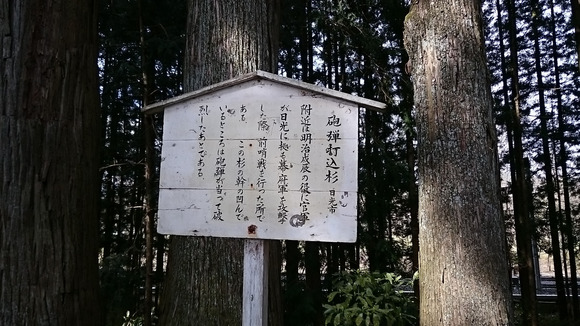 砲弾打込杉 日光市
附近は明治戊辰の役に官軍
が日光に拠る幕府軍を攻撃
した際、前哨戦を行った所で
ある。 この杉の幹の凹んで
いるところは砲弾が当って破
裂したあとである。